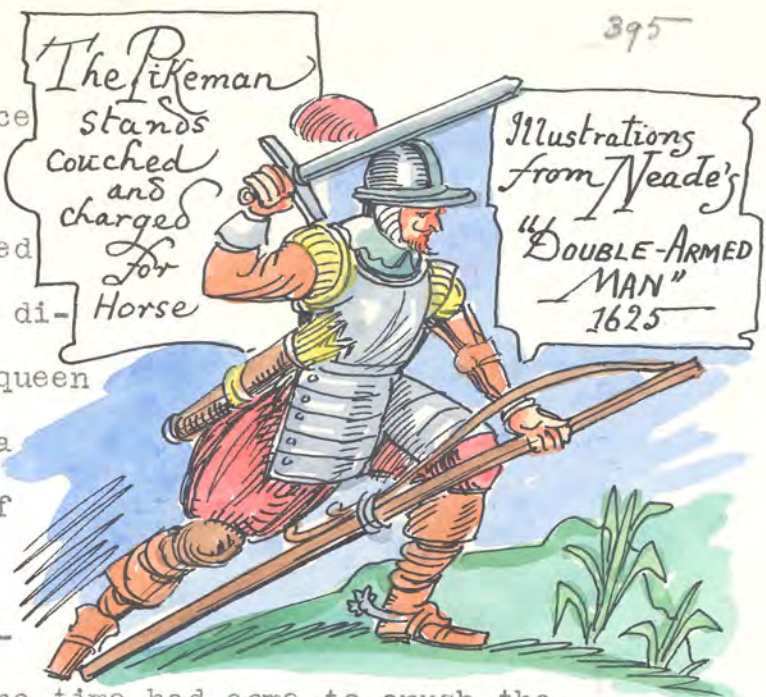 395
The Pikeman
stands
couched
and
charged
for
Horse
Illustrations
from Neade's
"DOUBLE-ARMED
MAN"
1625
ce
ed
di-
queen
a
f
-
time had come to crush the